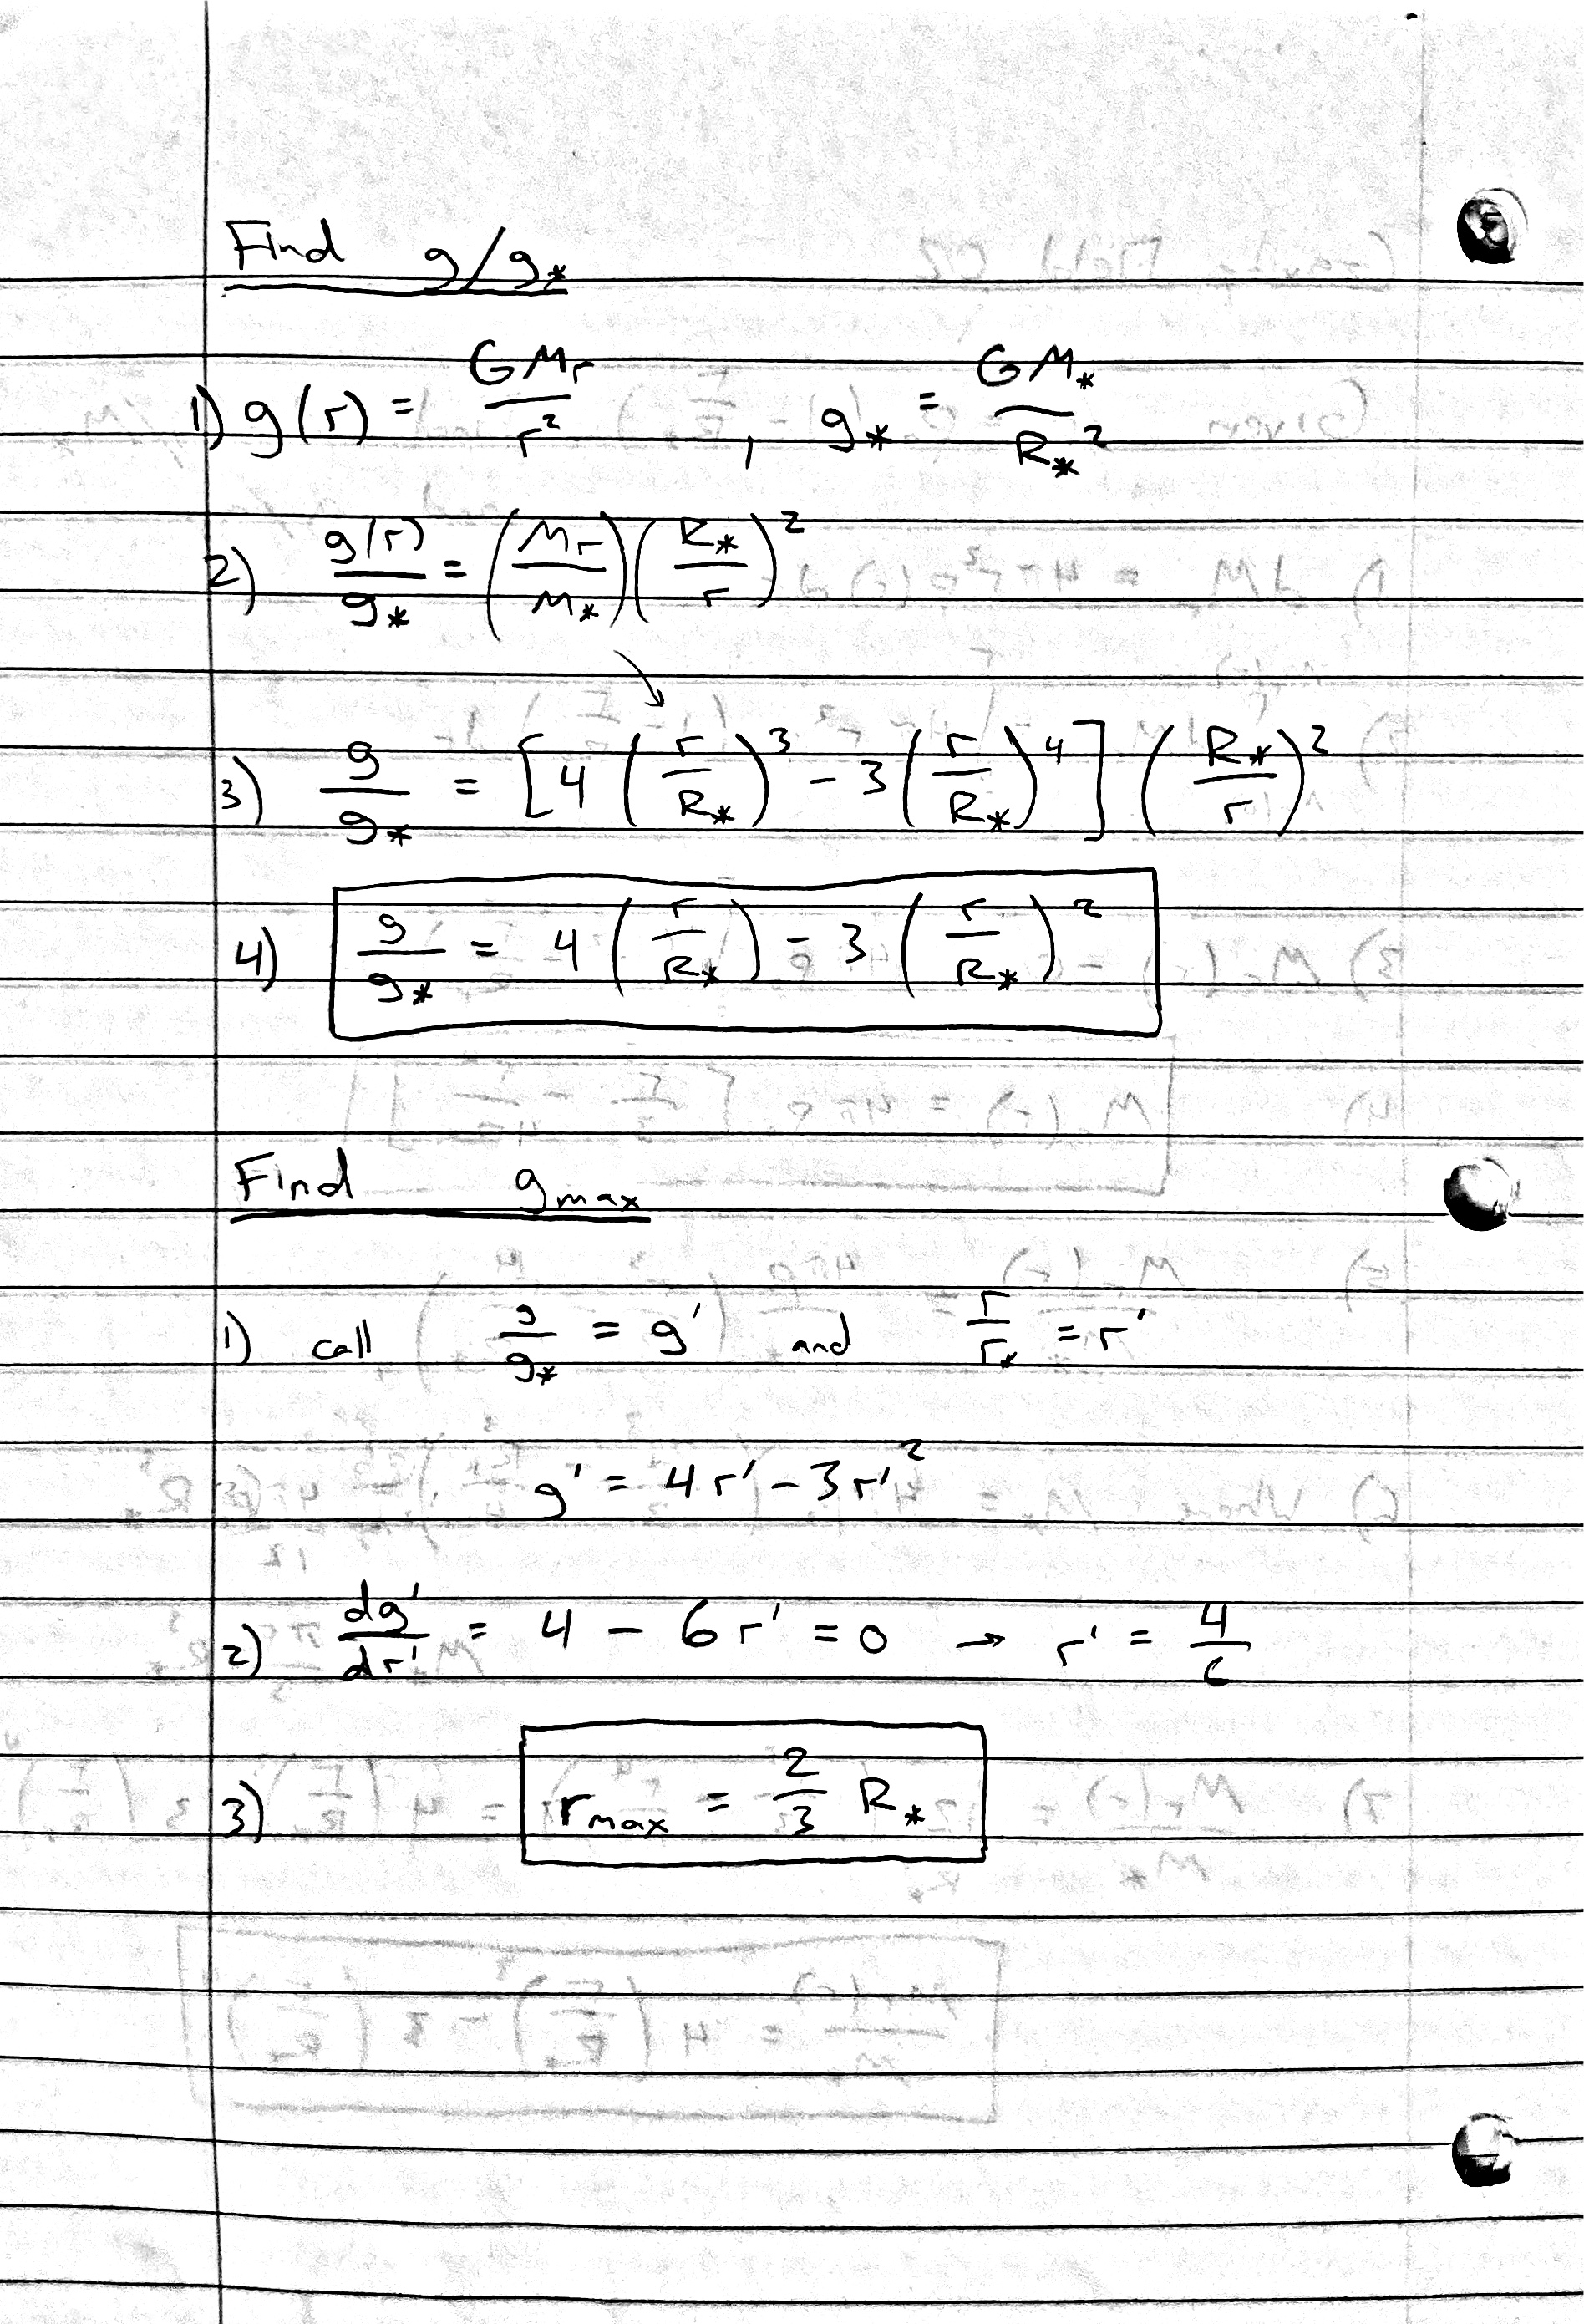 Find g/g*
1) g(r) = GMr / r² , g* = GM* / R*²
2) g(r)/g* = (Mr/M*)(R*/r)²
3) g/g* = [4(r/R*)³ - 3(r/R*)⁴](R*/r)²
4) g/g* = 4(r/R*) - 3(r/R*)²
Find gmax
1) call g/g* = g' and r/r* = r'
g' = 4r' - 3r'²
2) dg'/dr' = 4 - 6r' = 0 → r' = 4/6
3) rmax = 2/3 R*